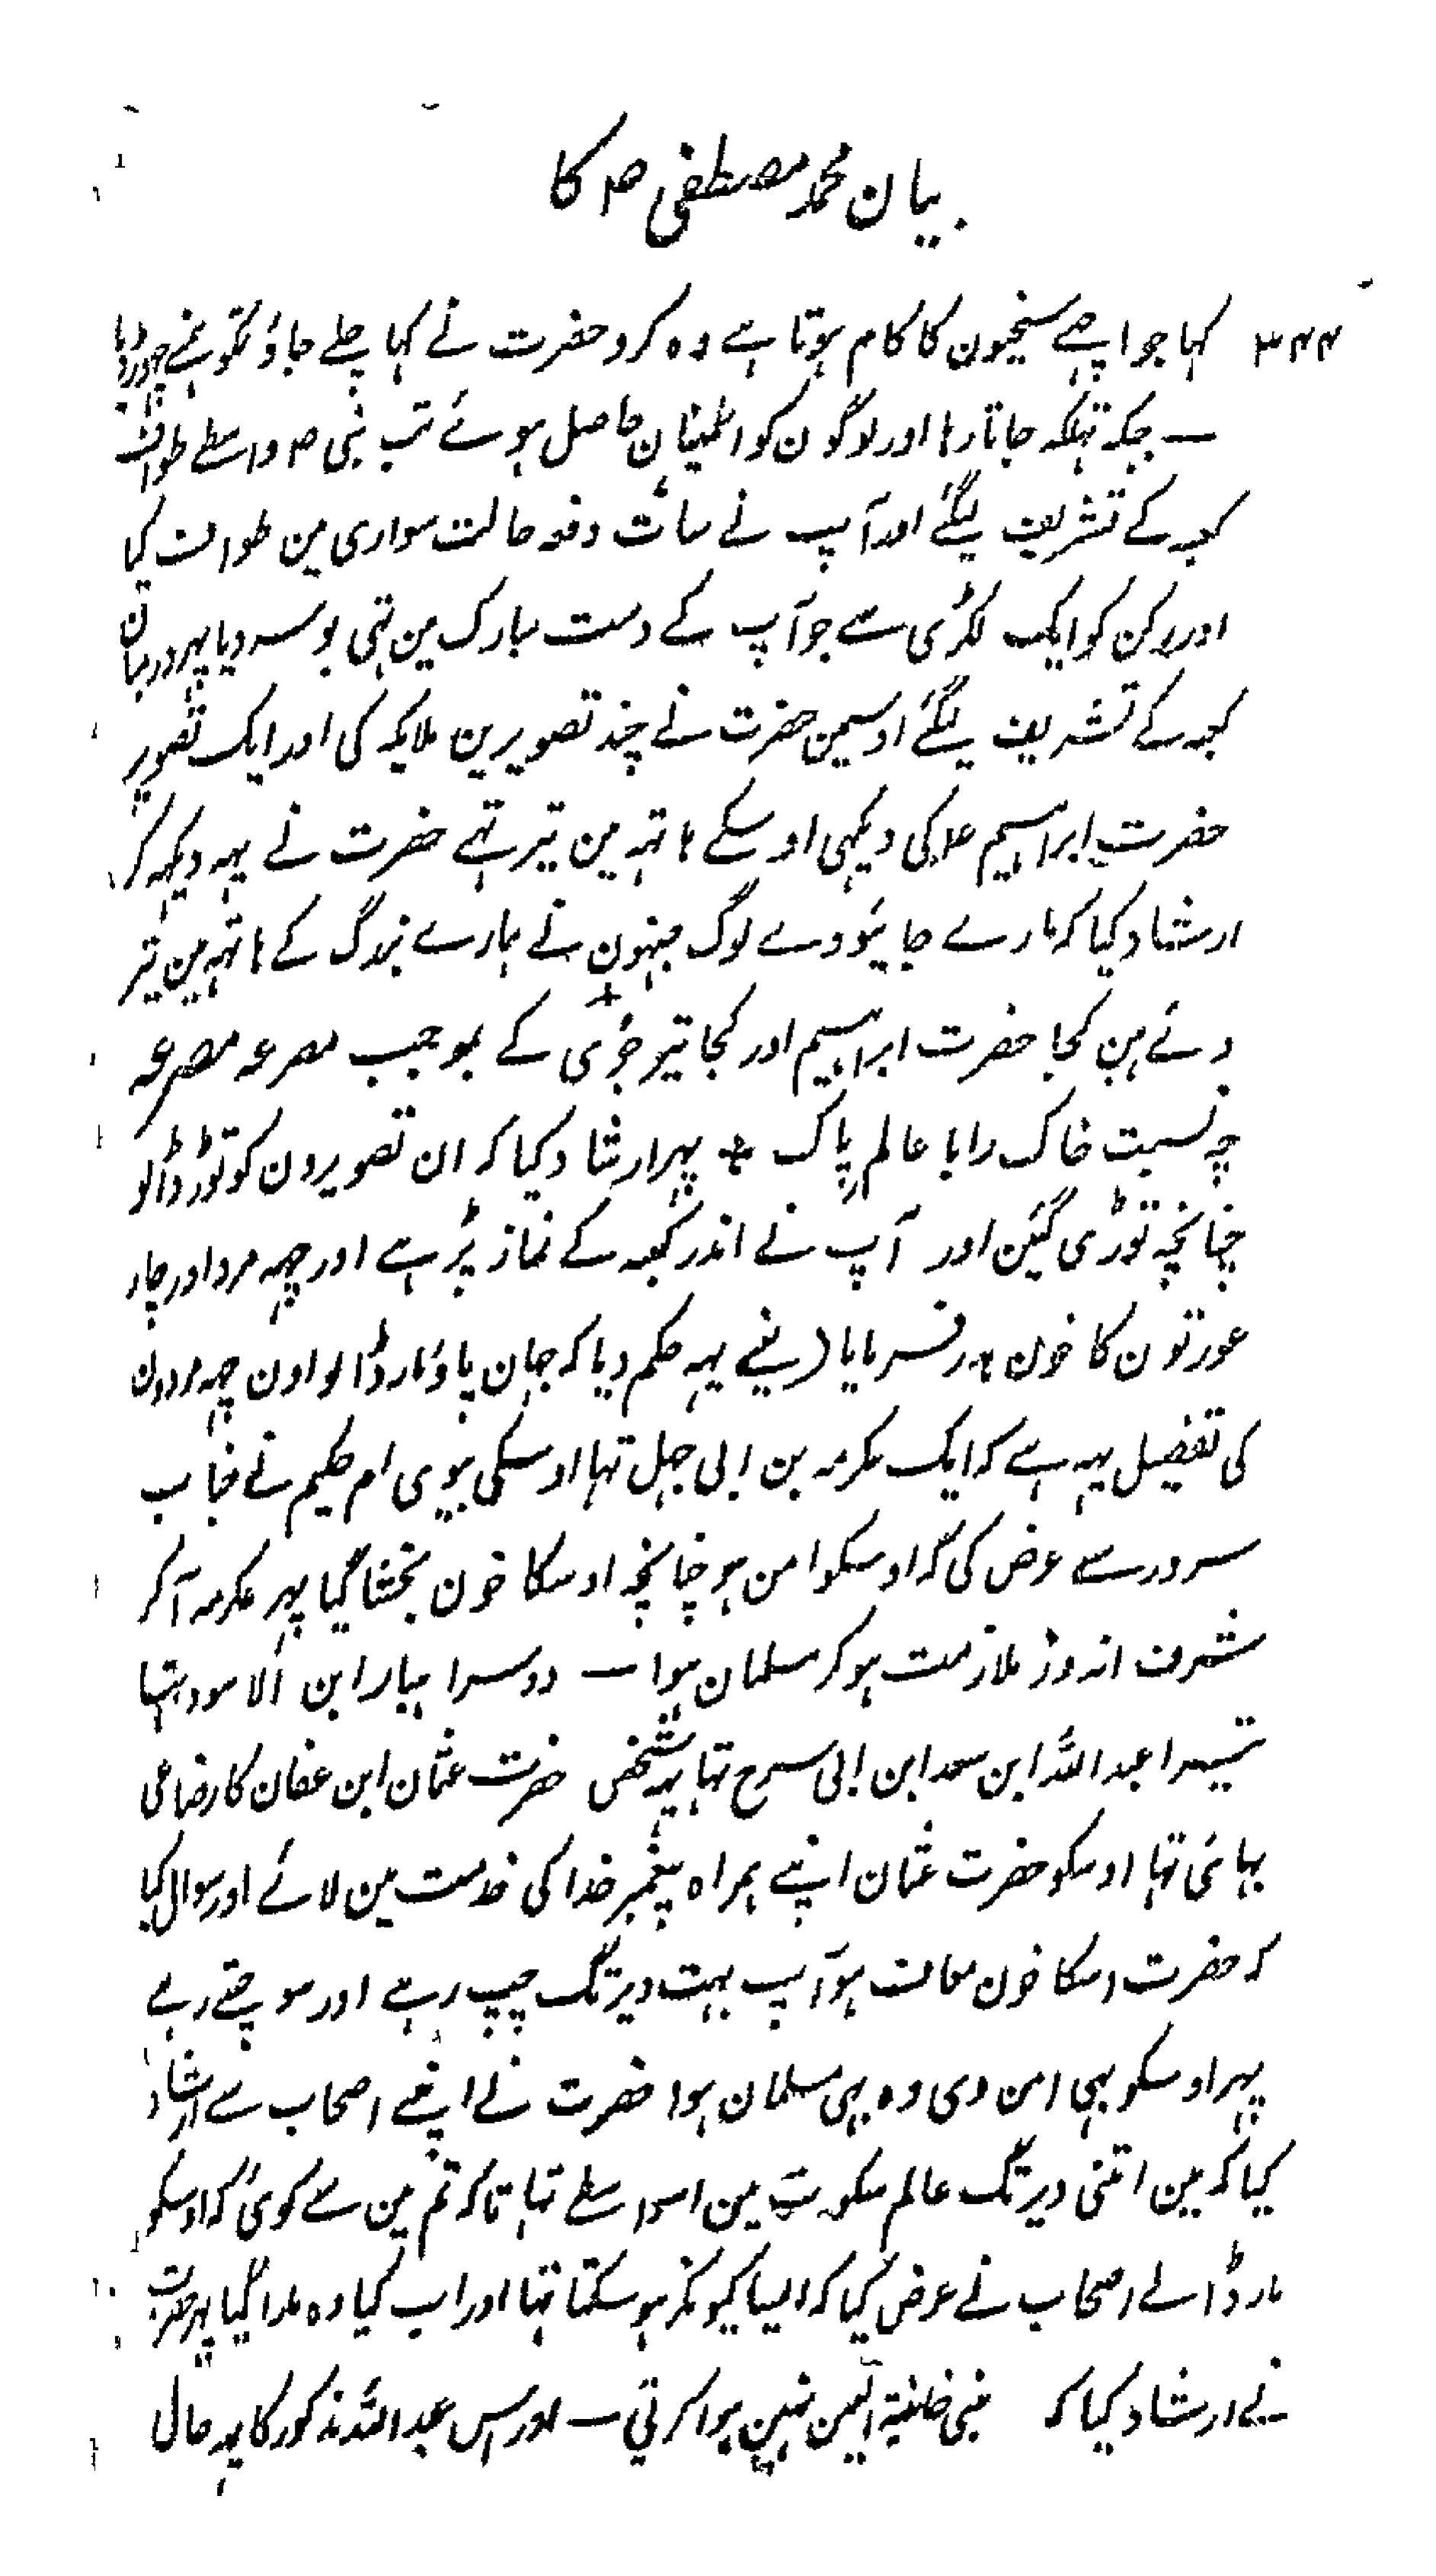 بیان محمد مصطفی ص کا
۳۴۴ کہا جو اچھے سخیون کا کام ہوتا ہے وہ کرو حضرت نے کہا چلے جاؤ تمکو ہمنے چھوڑ دیا
— جبکہ تہلکہ جاتا رہا اور لوگون کو اطمینان حاصل ہوئے تب نبی ص واسطے طواف
کعبہ کے تشریف لیگئے اور آپ نے سات دفعہ حالت سواری مین طواف کیا
اور رکن کو ایک لکڑی سے جو آپ کے دست مبارک مین تہی بوسہ دیا پہر درمیان
کعبہ کے تشریف لیگئے اوسیمن حضرت نے چند تصویرین ملایکہ کی اور ایک تصویر
حضرت ابراہیم ع کی دیکہی اوسکے ہاتہہ مین تیر تہے حضرت نے یہہ دیکہہ کر
ارشاد کیا کہ مارے جایئو وے لوگ جنہون نے ہمارے بزرگ کے ہاتہہ مین تیر
دئے ہین کجا حضرت ابراہیم اور کجا تیر جوئی کے بموجب مصرعہ مصرعہ
چہ نسبت خاک را با عالم پاک * پہر ارشاد کیا کہ ان تصویرون کو توڑ ڈالو
چنانچہ توڑی گیئن اور آپ نے اندر کعبہ کے نماز پڑہے اور چہہ مرد اور چار
عورتون کا خون ہدر فرمایا (یعنے یہہ حکم دیا کہ جہان پاؤ مار ڈالو اون چہہ مردون
کی تفصیل یہہ ہے کہ ایک عکرمہ بن ابی جہل تہا اوسکی بیوی ام حکیم نے جناب
سرور سے عرض کی کہ اوسکو امن ہو چنانچہ اوسکا خون بخشا گیا پہر عکرمہ آکر
شرف اندوز ملازمت ہو کر مسلمان ہوا — دوسرا ہبار ابن الاسود تہا
تیسرا عبد اللہ ابن سعد ابن ابی سرح تہا یہہ شخص حضرت عثمان ابن عفان کا رضاعی
بہائی تہا اوسکو حضرت عثمان اپنے ہمراہ پیغمبر خدا کی خدمت مین لائے اور سوال کیا
کہ حضرت اسکا خون معاف ہو آپ بہت دیر تک چپ رہے اور سوچتے رہے
پہر اوسکو بہی امن دی وہ بہی مسلمان ہوا حضرت نے اپنے اصحاب سے ارشاد
کیا کہ مین اتنی دیر تک عالم سکوت مین اسواسطے تہا تاکہ تم مین سے کوئی کہ اوسکو
مار ڈالے اصحاب نے عرض کیا کہ ایسا کیونکر ہو سکتا تہا اور اب کیا وہ مارا گیا پہر حضرت
نے ارشاد کیا کہ نبی خائنۃ العین نہین ہوا کرتی — اور اس عبد اللہ مذکور کا یہہ حال